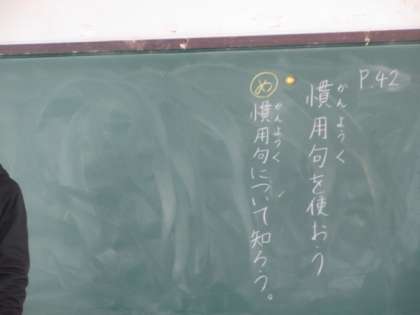 P.42
かんようく
慣用句を使おう
かんようく
め 慣用句について知ろう。